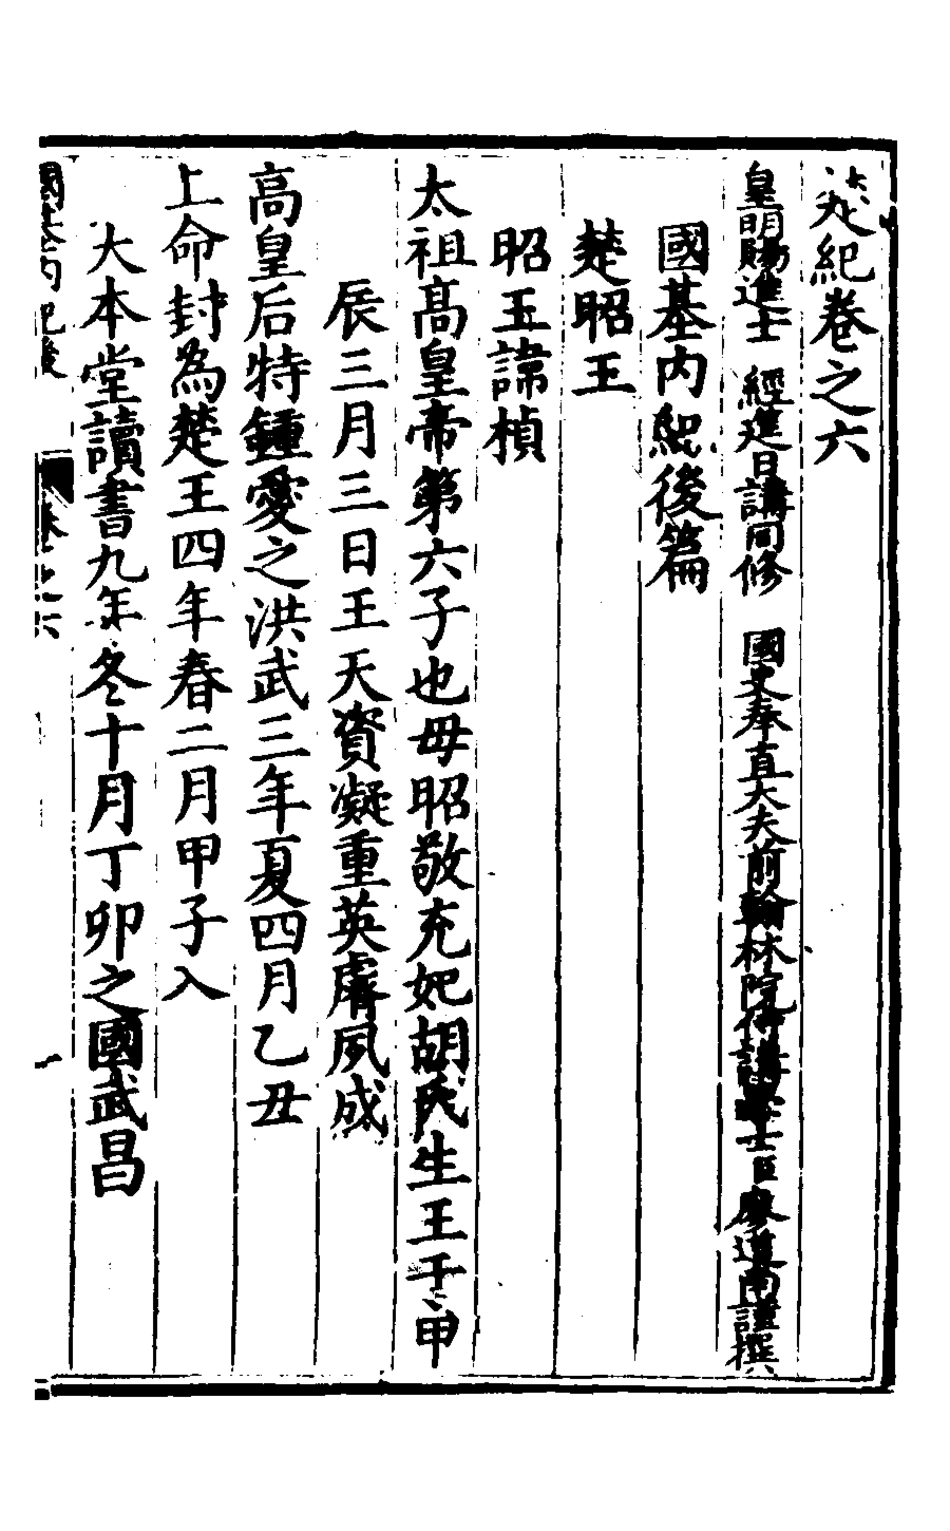 楚紀卷之六
皇明賜進士 經筵日講同修 國史奉直大夫前翰林院侍講學士臣廖道南謹撰
國基內紀後篇
楚昭王
昭王諱楨
太祖高皇帝第六子也母昭敬充妃胡氏生王于甲
辰三月三日王天資凝重英膚夙成
高皇后特鍾愛之洪武三年夏四月乙丑
上命封為楚王四年春二月甲子入
大本堂讀書九年冬十月丁卯之國武昌
國基內紀後 卷之六 一